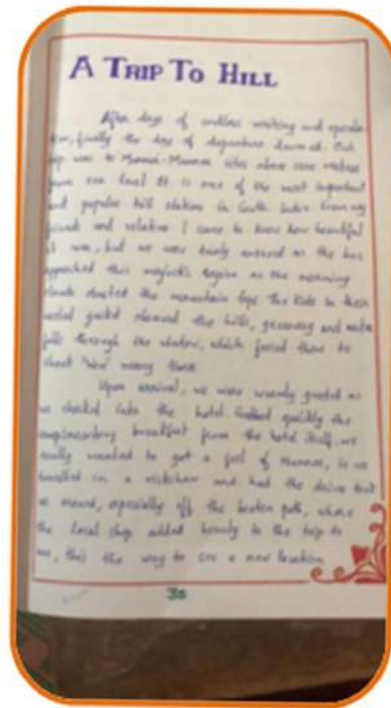 A TRIP TO HILL
After days of endless waiting and
finally the day of departure dawned. Our
trip was to Munnar. Munnar above
from sea level. It is one of the most important
and popular hill stations in South India. From my
friends and relative I came to know how beautiful
it was, but we were as the bus
this region as the morning
clouds the mountain tops. The kids in their
the hills, greenery and
falls through the window, which forced them to
shout many times.
Upon arrival, we were warmly greeted as
we checked into the hotel. quickly the
complimentary breakfast from the hotel itself, we
really wanted to get a feel of Munnar, so we
travelled in a rickshaw and had the driver
us around, especially off the beaten path, where
the local added beauty to the trip to
me, this the way to see a new location
38